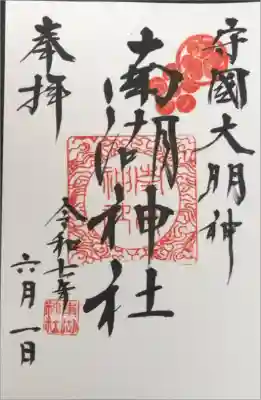 守國大明神
南湖神社
奉拝
令和七年
六月一日